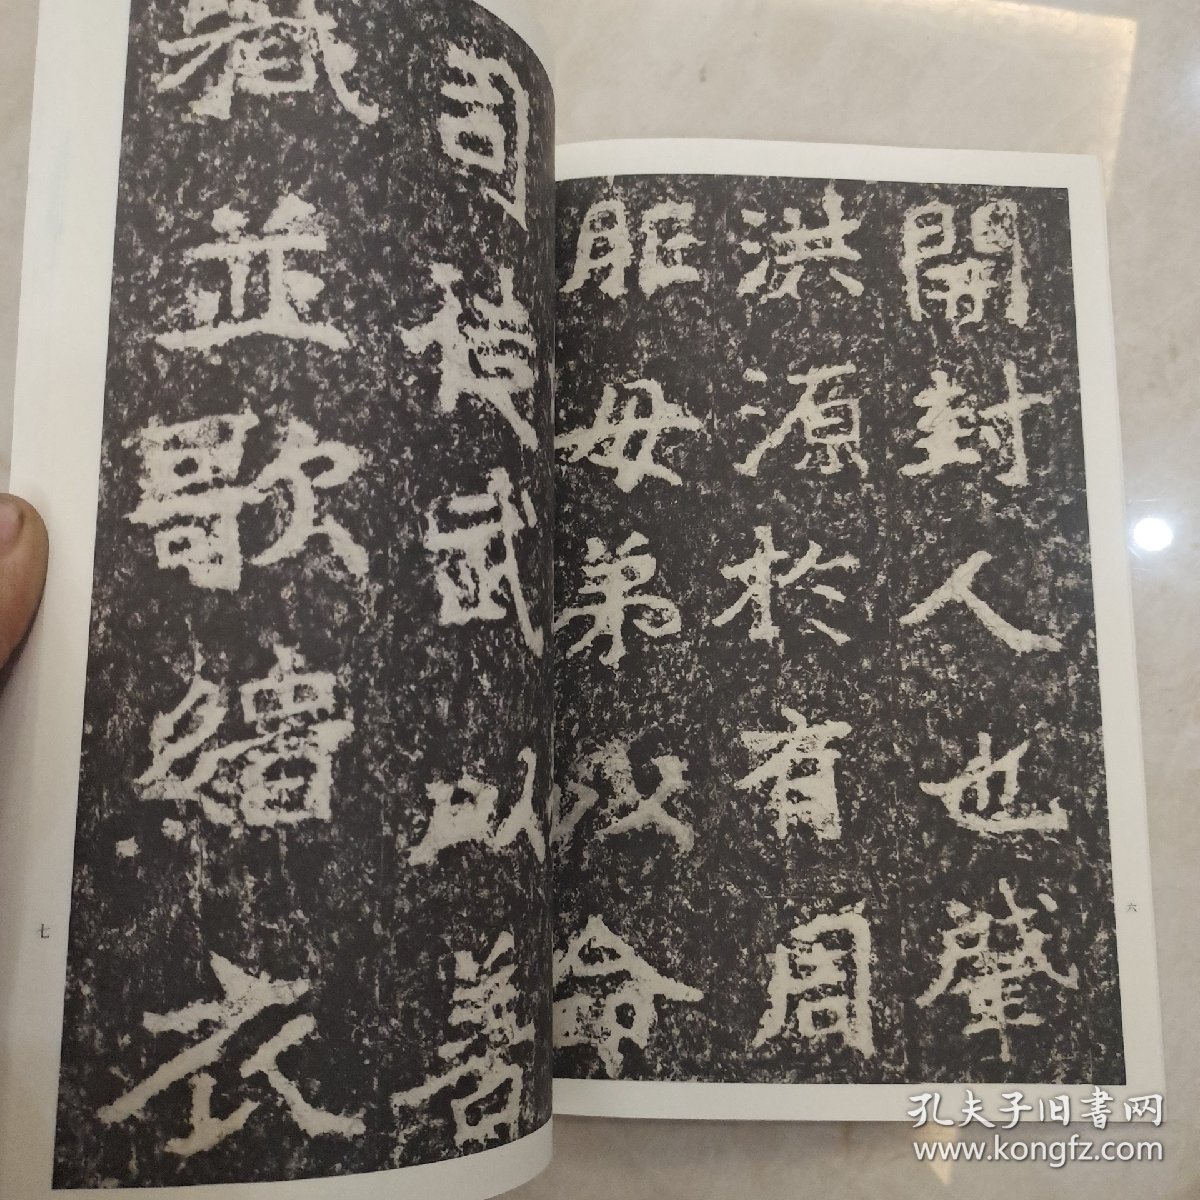 開封人也肇
洪源於有周
胙母弟以命
六
司徒武以善
職並歌緇衣
七
孔夫子旧書网
www.kongfz.com